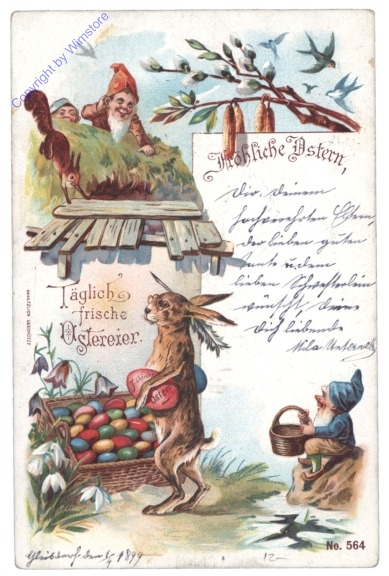 Copyright by Wimstore
Fröhliche Ostern,
Dir, deinem
hochverehrten Eltern,
der lieben guten
Tante u. dem
lieben Schwesterlein
wünscht, deine
Dich liebende
Mila
Täglich
frische
Ostereier.
Ostern
Gleisdorf den 1/4 1899
12-
No. 564